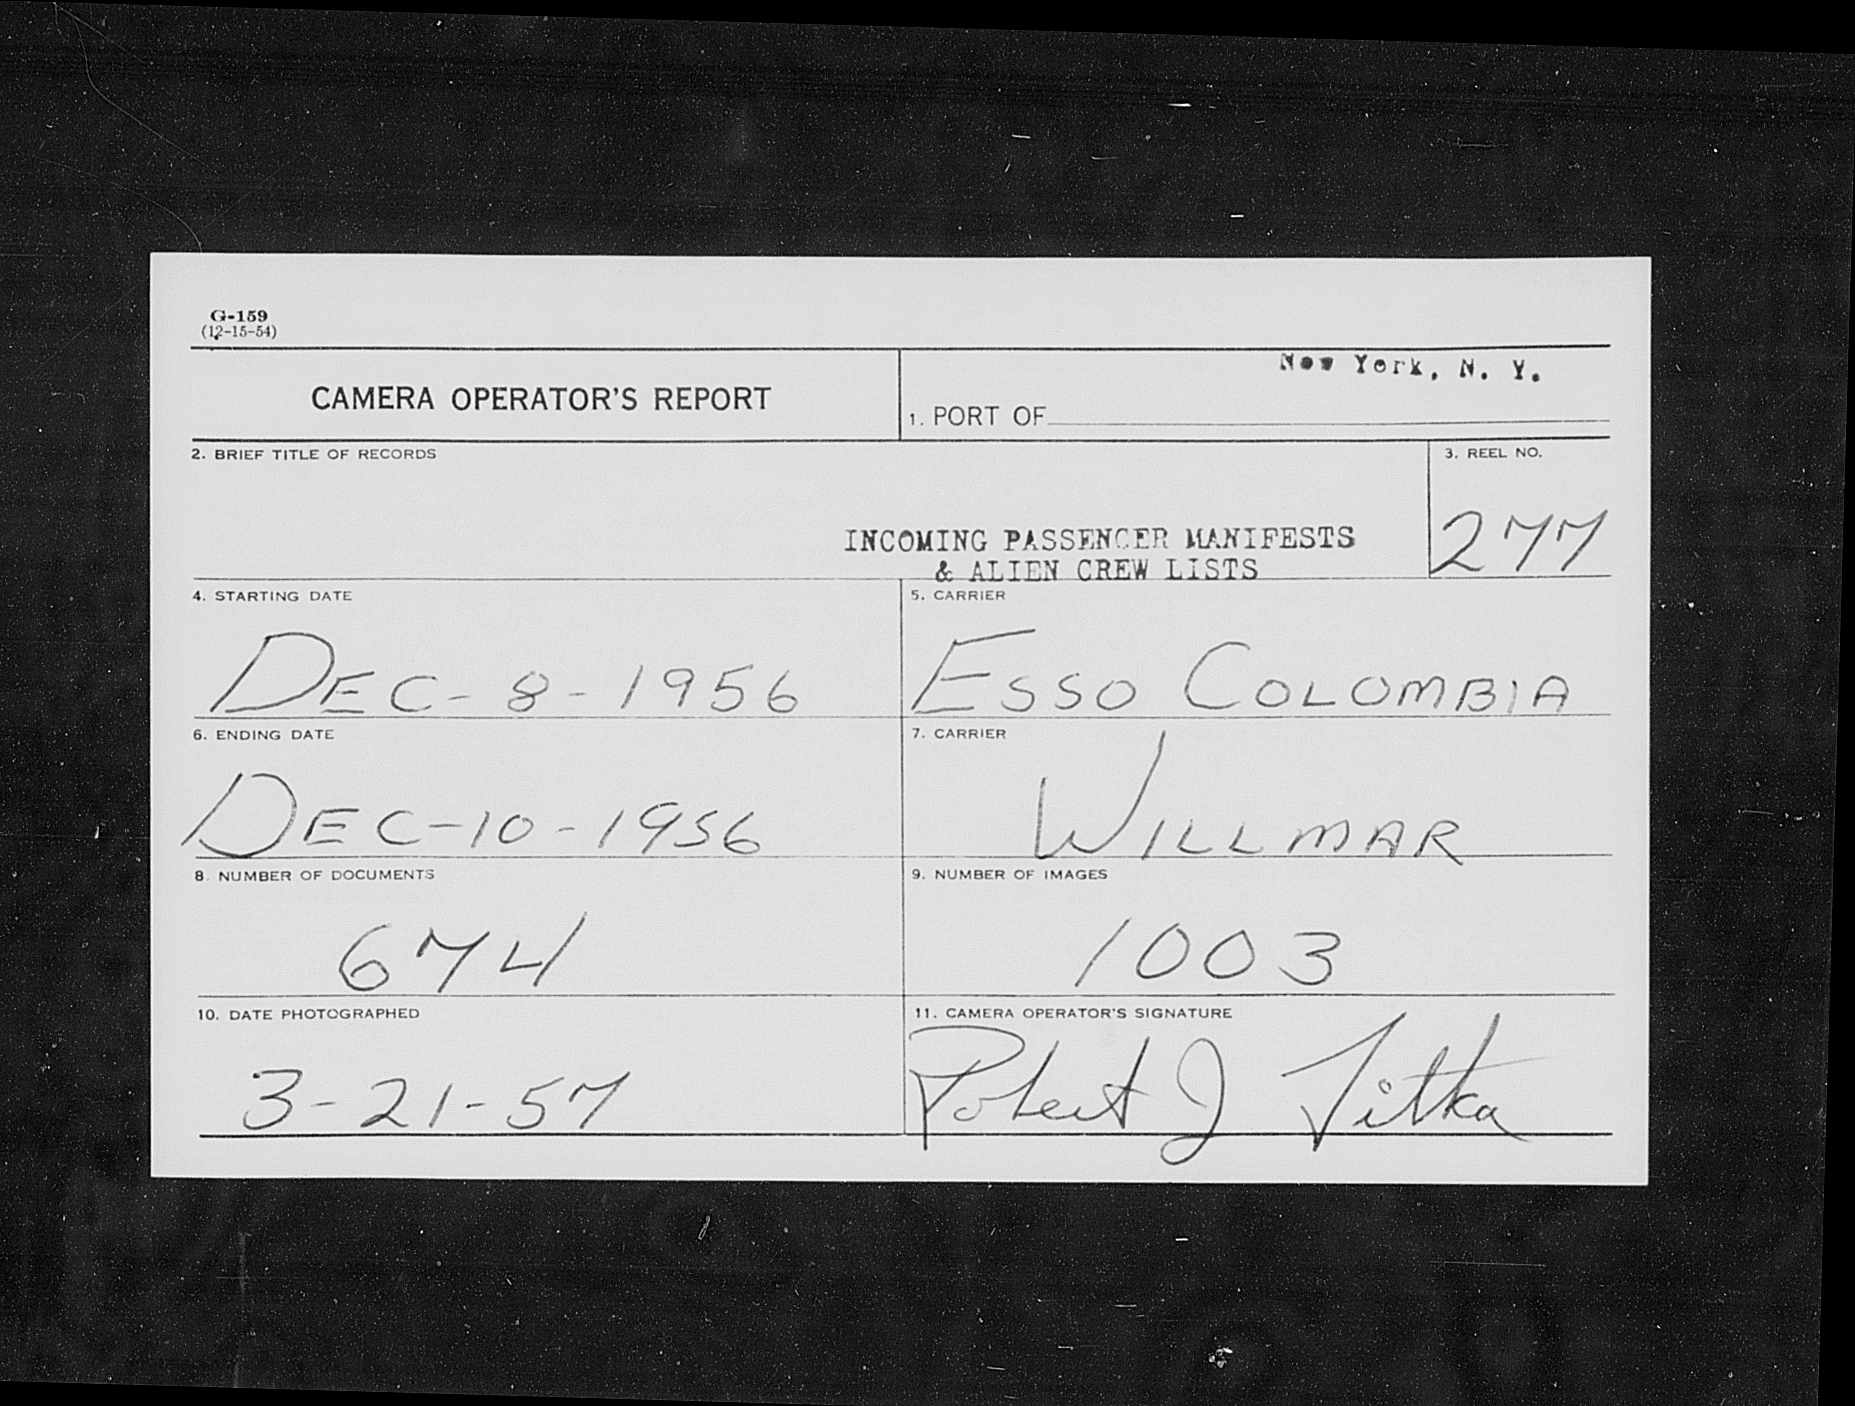 G-159
(12-15-54)
CAMERA OPERATOR'S REPORT
New York, N. Y.
1. PORT OF
2. BRIEF TITLE OF RECORDS
3. REEL NO.
INCOMING PASSENGER MANIFESTS
& ALIEN CREW LISTS
277
4. STARTING DATE
5. CARRIER
DEC-8-1956
ESSO COLOMBIA
6. ENDING DATE
7. CARRIER
DEC-10-1956
WILLMAR
8. NUMBER OF DOCUMENTS
9. NUMBER OF IMAGES
674
1003
10. DATE PHOTOGRAPHED
11. CAMERA OPERATOR'S SIGNATURE
3-21-57
Robert J